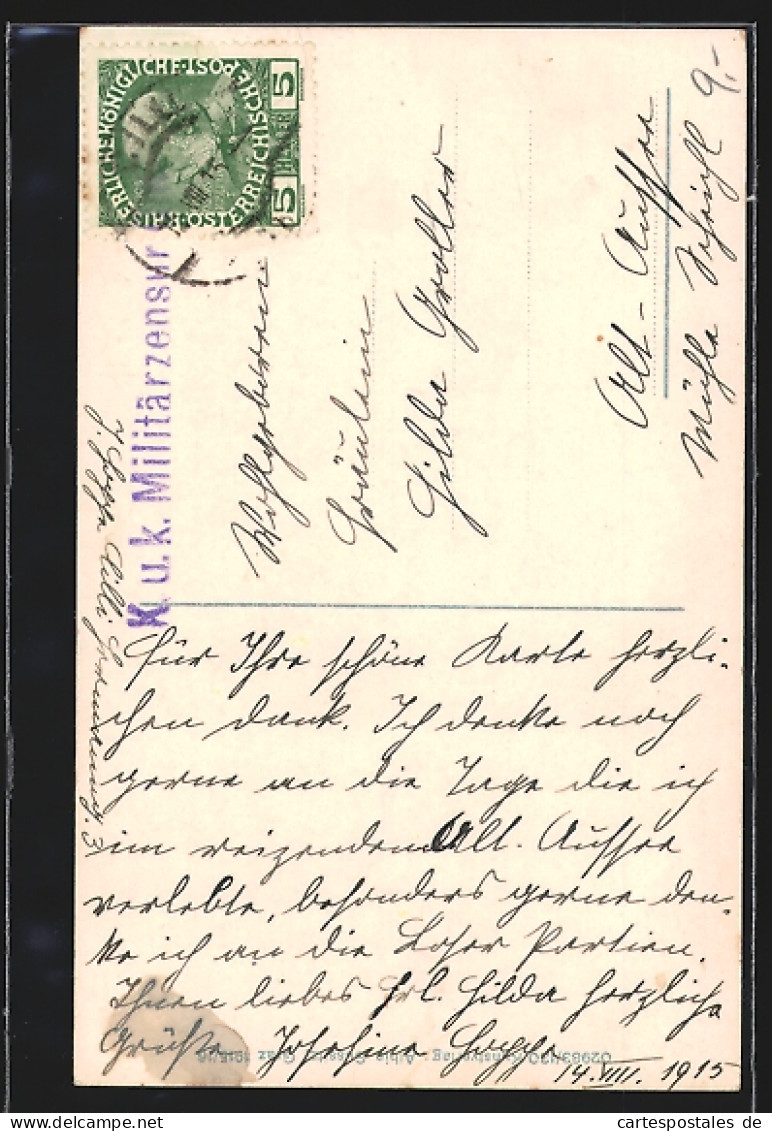 KAISERLICHEKÖNIGLICHE ÖSTERREICHISCHE POST
5 HELLER 5
VIII 15
K.u.k. Militärzensur
Wohlgeboren
Fräulein
Hilda Groller
Alt-Aussee
Mühle
9.-
Für Ihre schöne Karte herzli-
chen Dank. Ich denke noch
gerne an die Tage die ich
im reizenden Alt-Aussee
verlebte, besonders gerne den-
ke ich an die Loser Partien.
Ihnen liebes Frl. Hilda herzliche
Grüße Josefine
14. VIII. 1915
3
cartespostales de